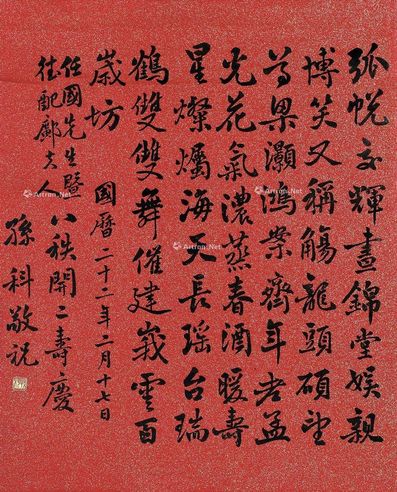 弧帨交輝晝錦堂娛親
博笑又稱觴龍頭碩望
尊梁灝鴻案齊年老孟
光花氣濃蒸春酒暖壽
星燦爛海天長瑤台瑞
鶴雙雙舞催建峩雲百
歲坊
國曆二十二年二月十七日
任國先生暨
德配鄺夫人
八秩開二壽慶
孫科敬祝
Artron.Net
Artron.Net
Artron.Net
Artron.Net